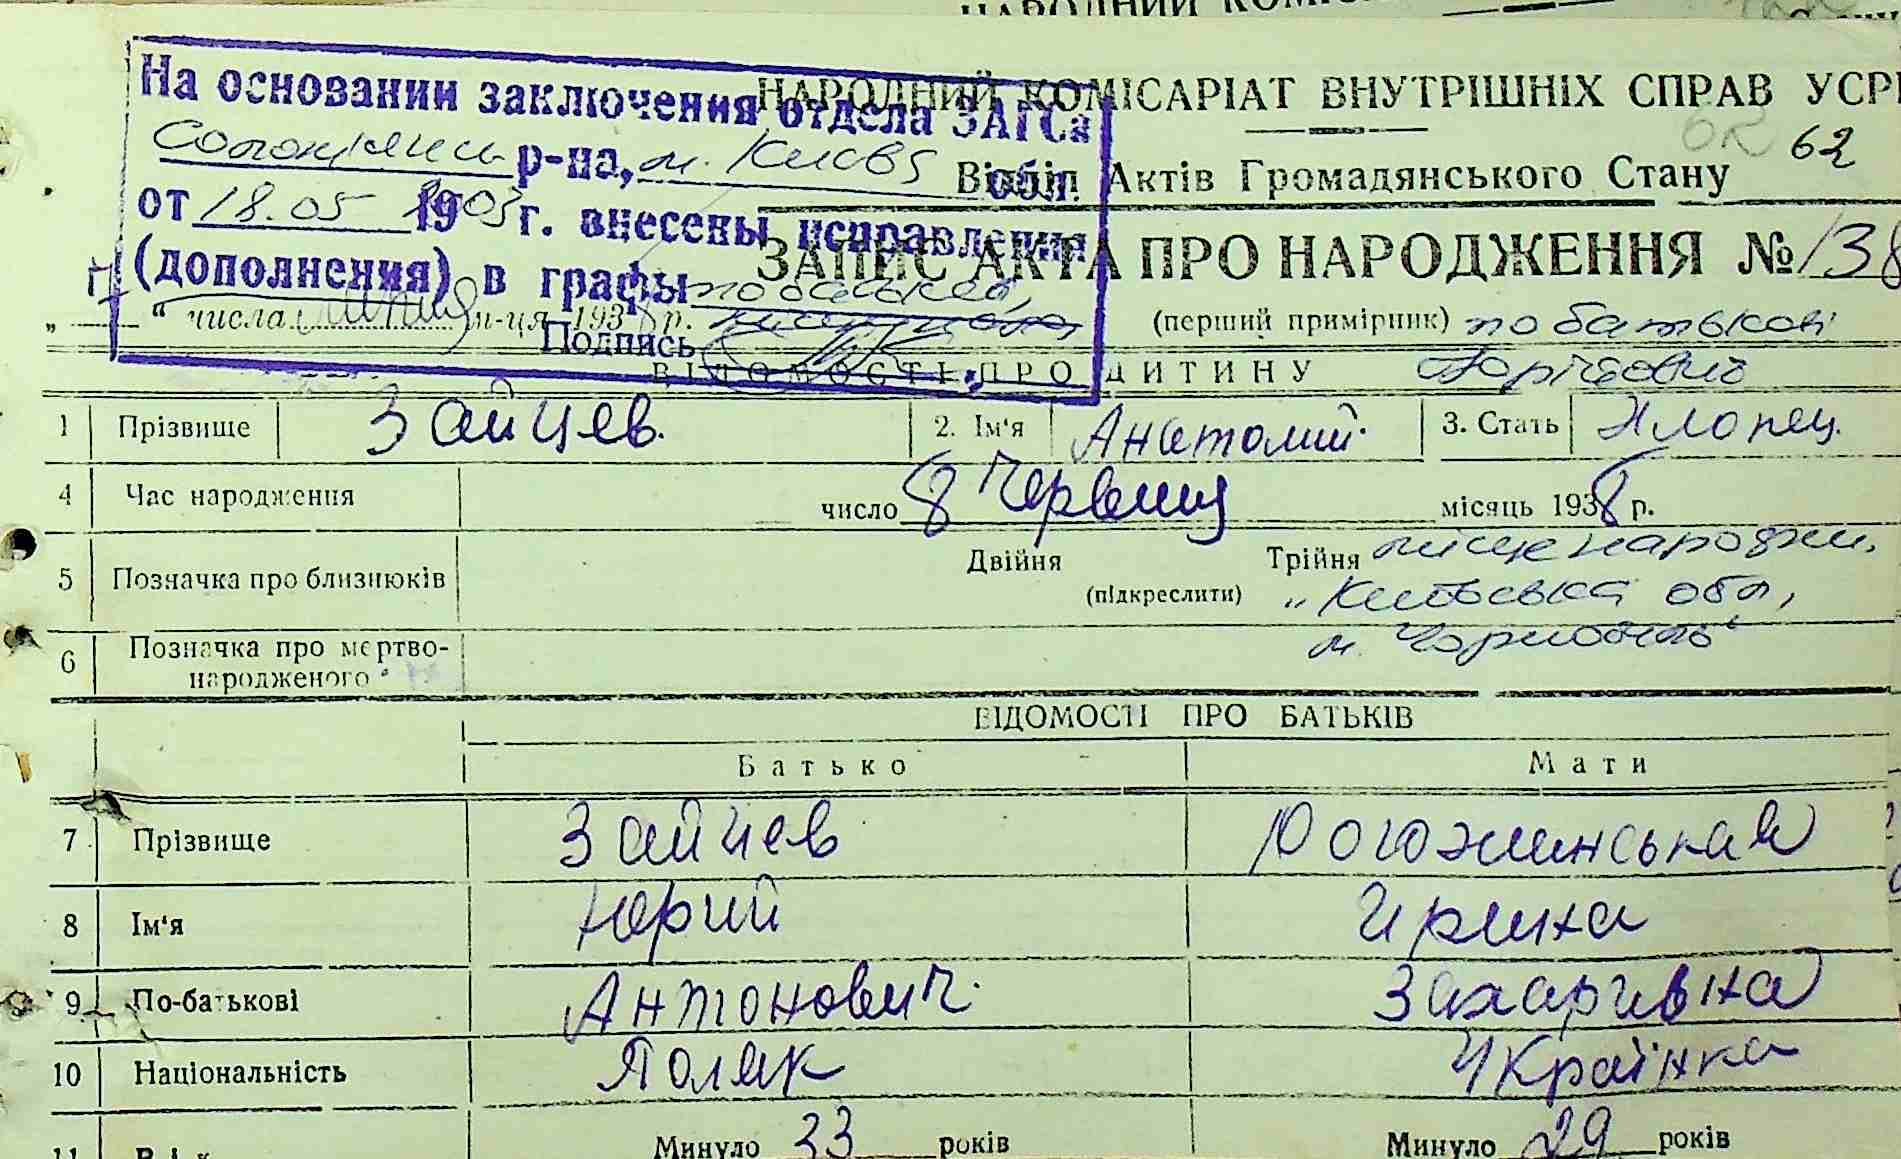 НАРОДНИЙ КОМІСАРІАТ ВНУТРІШНІХ СПРАВ УСРР
62
Відділ Актів Громадянського Стану
На основании заключения отдела ЗАГСа
р-на, м. Києва обл.
от 18.05 2003 г. внесены исправления
(дополнения) в графы по батькові,
Подпись
ЗАПИС АКТА ПРО НАРОДЖЕННЯ № 138
„ “ числа липня м-ця 1938 р.
(перший примірник) по батькові
Юрійович
ВІДОМОСТІ ПРО ДИТИНУ
1 Прізвище Зайцев. 2. Ім'я Анатолий. 3. Стать Хлопец.
4 Час народження число 8 Червня місяць 1938 р.
5 Позначка про близнюків Двійня Трійня (підкреслити)
місце народж.
„Київська обл,
м. Чорнобиль“
6 Позначка про мертво-
народженого
ВІДОМОСТІ ПРО БАТЬКІВ
Батько Мати
7 Прізвище Зайцев
8 Ім'я Юрий Ирина
9 По-батькові Антонович. Захаривна
10 Національність Поляк Українка
11 Минуло 33 років Минуло 29 років